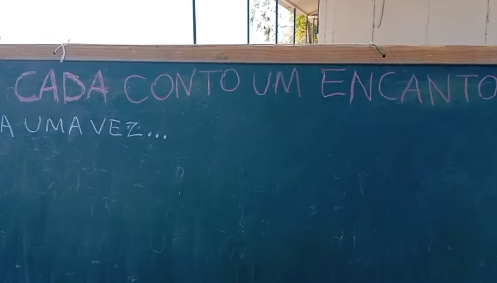 CADA CONTO UM ENCANTO
A UMA VEZ...